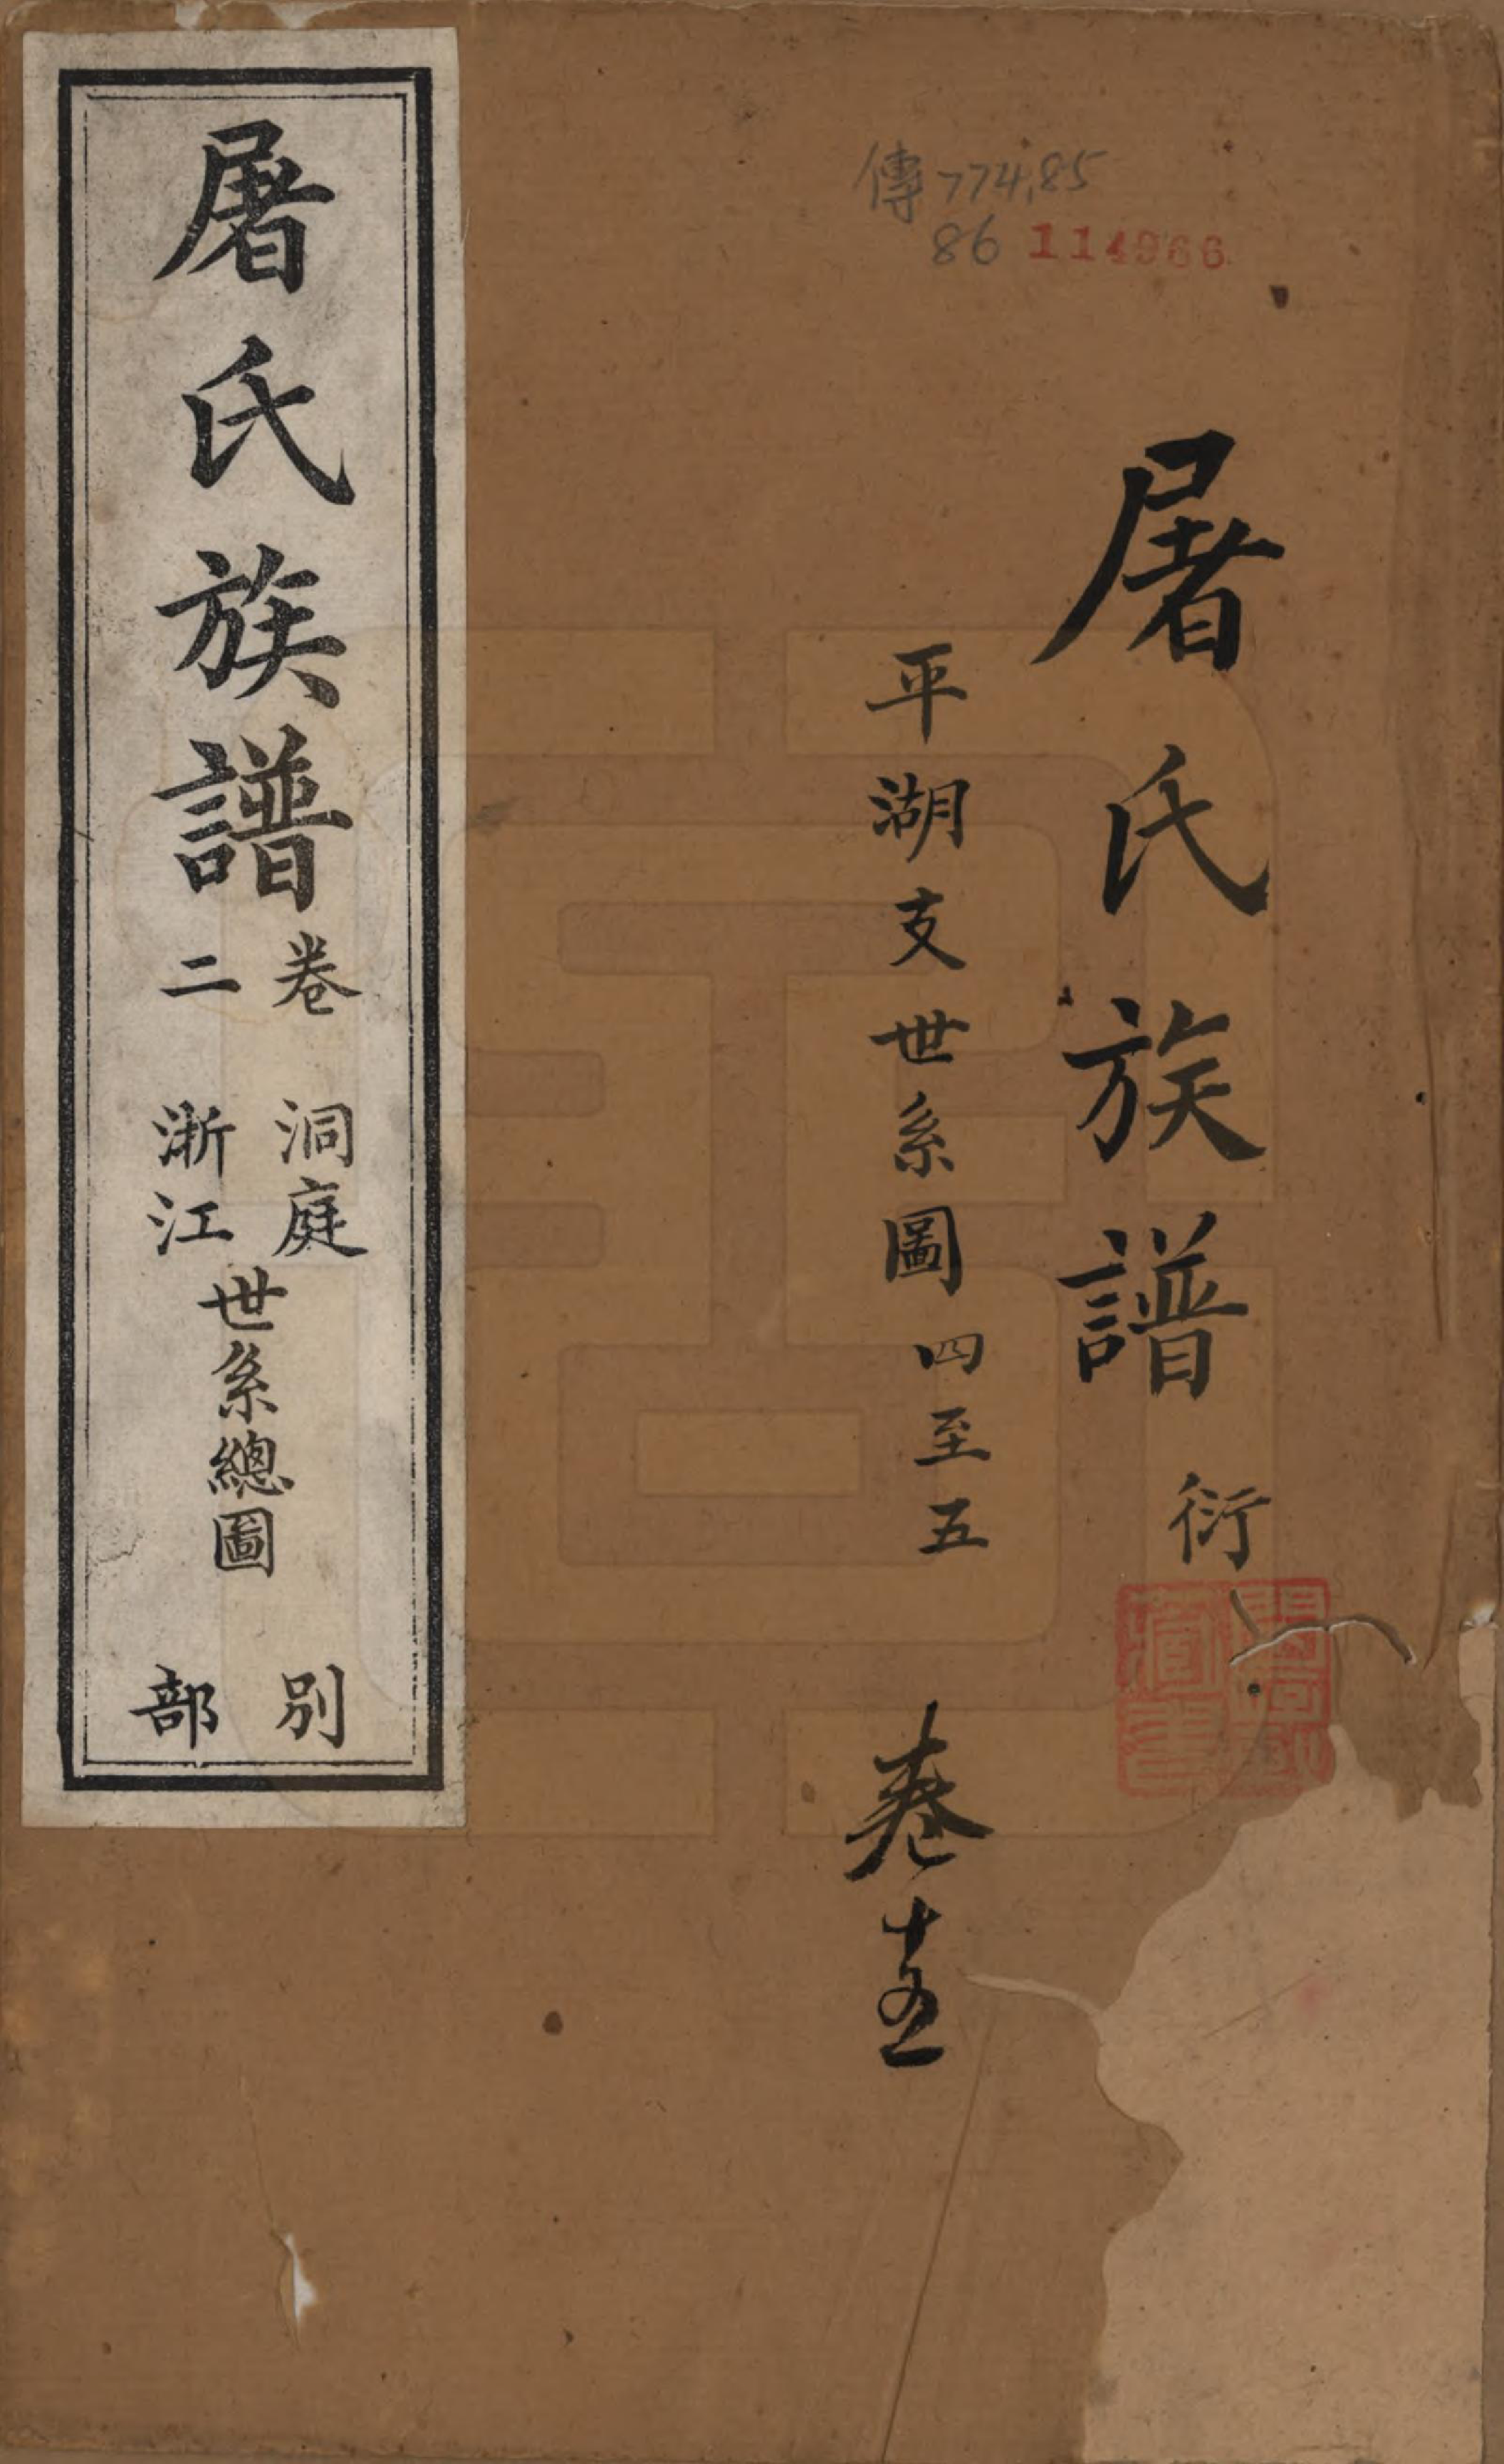 傳774.85
86 114966
屠氏族譜 衍
平湖支世系圖四至五
卷十五
屠氏族譜
卷二
洞庭
浙江
世系總圖
別部